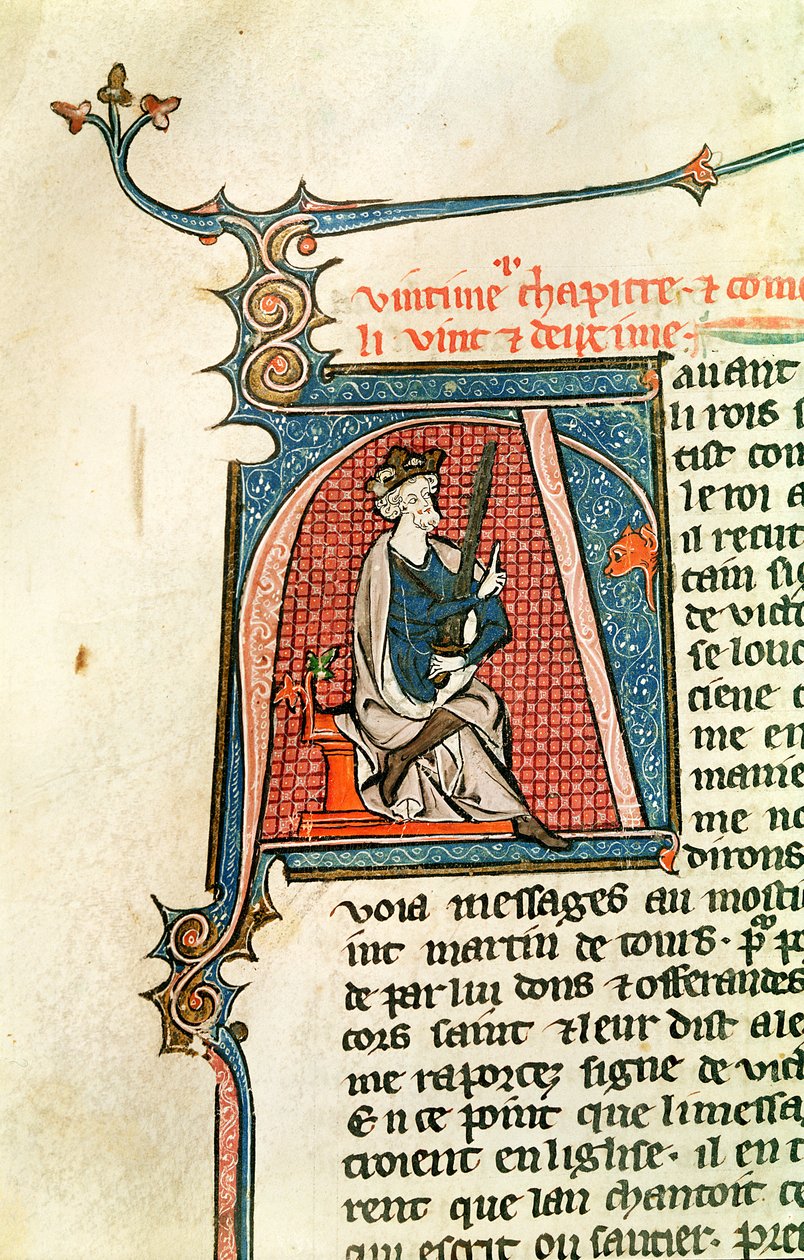 vintime chapitre. ⁊ com
li vint ⁊ deuxime.
A
auant
li rois s
tist com
le roi a
il recut
tain sig
de vict
se loue
ciene
me en
manie
me no
dirons
voia messages au mosti
int martin de tours.
de par lui dons ⁊ offerandes
cors saint ⁊ leur dist ale
me raportez signe de vict
En ce point que li messa
troient en liglise. il en t
rent que lan chantoit ce
qui escrit ou sautier. pre